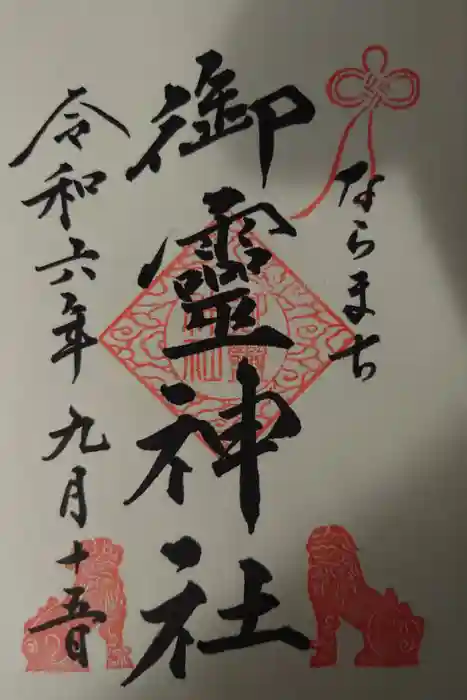 ならまち
御靈神社
令和六年九月十五日